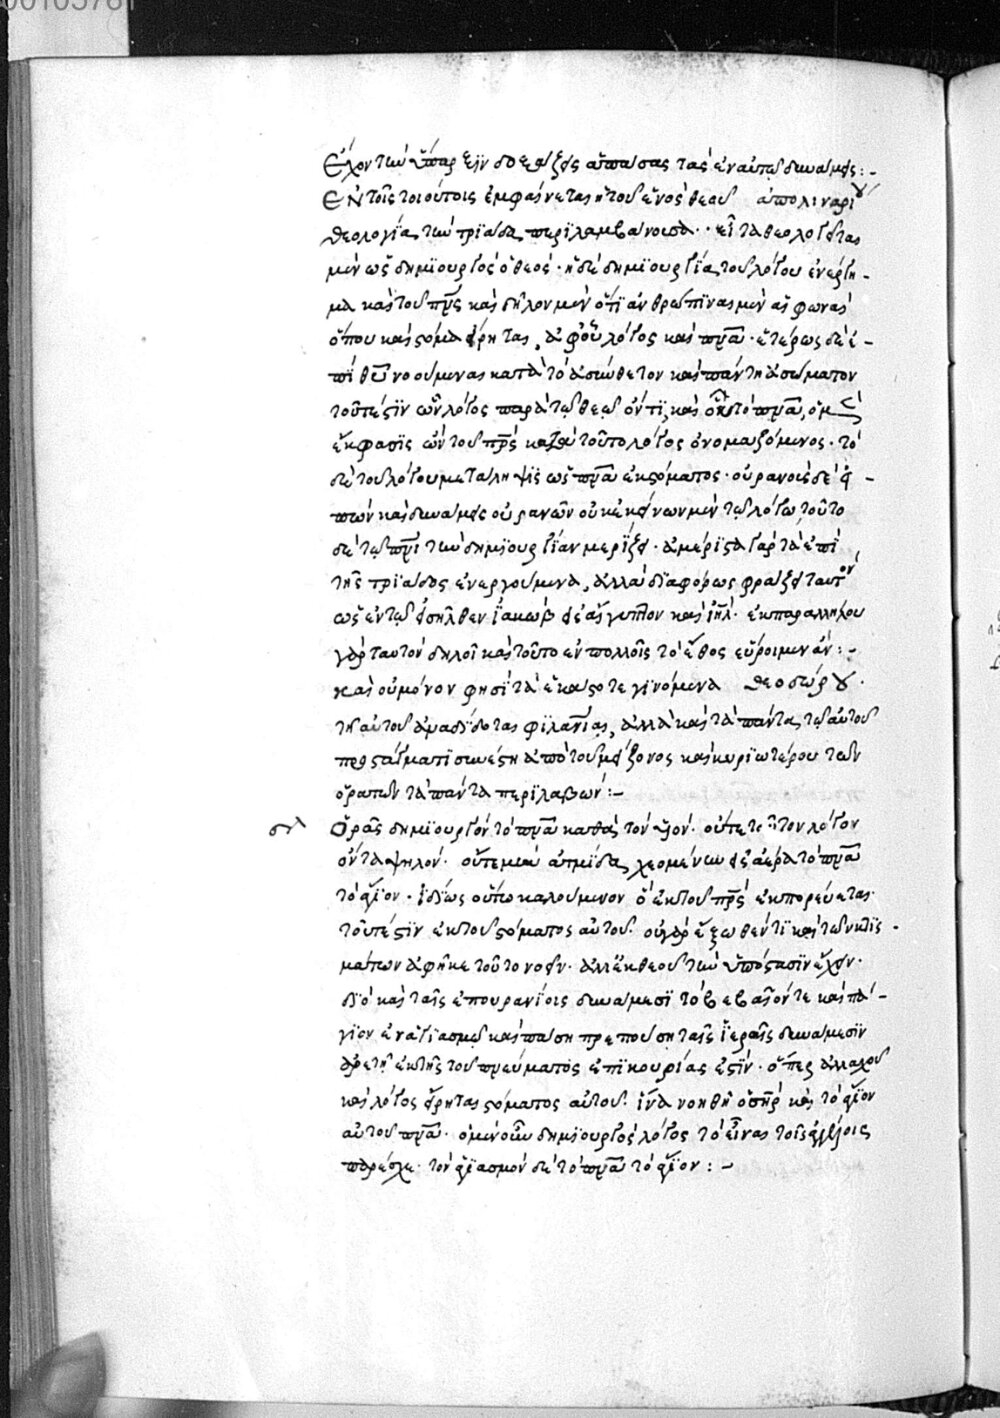 00105781
ἔχον τὴν ὕπαρξιν δέδειξαι ἁπάσας τὰς ἐν αὐτῷ δυνάμεις :-
Ἐν τοῖς τοιούτοις ἐμφαίνεται ἡ τοῦ ἑνὸς θεοῦ ἀπολιναρίου
θεολογία τὴν τριάδα περιλαμβάνουσα · εἶτα θεολογεῖται
μὲν ὡς δημιουργὸς ὁ θεός · ἡ δὲ δημιουργία τοῦ λόγου ἐνέργη-
μα καὶ τοῦ πνς καὶ δῆλον μὲν ὅτι ἀνθρώπιναι μὲν αἱ φωναὶ
ὅπου καὶ στόμα εἴρηται, ἀφ' οὗ λόγος καὶ πνα · ἑτέρως δὲ ἐ-
πὶ θυ νοούμεναι κατὰ τὸ ἀσύνθετον καὶ πάντη ἀσώματον
τουτέστιν ὢν λόγος παρὰ τῷ θεῷ ὄντι, καὶ τὸ πνα,
ἔκφασις ὢν τοῦ πρς καὶ τοῦτο λόγος ὀνομαζόμενος · τὸ
δὲ τοῦ λόγου μετάληψις ὡς πνα ἐκ στόματος · οὐρανοὺς δὲ εἰ-
πὼν καὶ δυνάμεις οὐρανῶν οὐκ ἐκείνων μὲν τῷ λόγῳ τοῦτο
δὲ τῷ πνι τὴν δημιουργίαν μερίζει · ἀμέριστα γὰρ τὰ ἐπὶ
τῆς τριάδος ἐνεργούμενα, ἀλλὰ διαφόρως φράζει ταυτὸν
ὡς ἐν τῷ εἰσῆλθεν ἰακὼβ εἰς αἴγυπτον καὶ ιηλ · ἐκ παραλλήλου
γὰρ ταυτὸν δηλοῖ καὶ τοῦτο ἐν πολλοῖς τὸ ἔθος εὕροιμεν ἄν :-
καὶ οὐ μόνον φησὶ τὰ ἑκάστοτε γινόμενα θεοδώρου ·
τῇ αὐτοῦ φιλανίᾳ, ἀλλὰ καὶ τὰ πάντα τῷ αὐτοῦ
προστάγματι συνέστη ἀπὸ τοῦ μείζονος καὶ κυριωτέρου τῶν
ὁρατῶν τὰ πάντα περιλαβών :-
Ὁρᾷς δημιουργὸν τὸ πνα καθὰ τὸν υἱόν · οὔτε τὸν λόγον
ὄντα ψιλόν · οὔτε μὴν ἀτμίδα χεομένην εἰς ἀέρα τὸ πνα
τὸ ἅγιον · ἰδίως οὕτω καλούμενον ὃ ἐκ τοῦ πρς ἐκπορεύεται
τουτέστιν ἐκ τοῦ στόματος αὐτοῦ · οὐ γὰρ ἔξωθέν τι καὶ τῶν κτισ-
μάτων ἀφῆκε τοῦτο νοεῖν · ἀλλ' ἐκ θεοῦ τὴν ὑπόστασιν ἔχειν ·
διὸ καὶ ταῖς ἐπουρανίοις δυνάμεσι τὸ βέβαιόν τε καὶ πά-
γιον ἐν ἁγιασμῷ καὶ πάσῃ πρεπούσῃ ταῖς ἱεραῖς δυνάμεσιν
ἀρετῇ ἐκ τῆς τοῦ πνεύματος ἐπικουρίας ἐστίν · ὅπερ ἀλλαχοῦ
καὶ λόγος εἴρηται στόματος αὐτοῦ · ἵνα νοηθῇ ὁ σηρ καὶ τὸ ἅγιον
αὐτοῦ πνα · ὁ μὲν οὖν δημιουργὸς λόγος τὸ εἶναι τοῖς ἀγγέλοις
παρέσχε · τὸν ἁγιασμὸν δὲ τὸ πνα τὸ ἅγιον :-